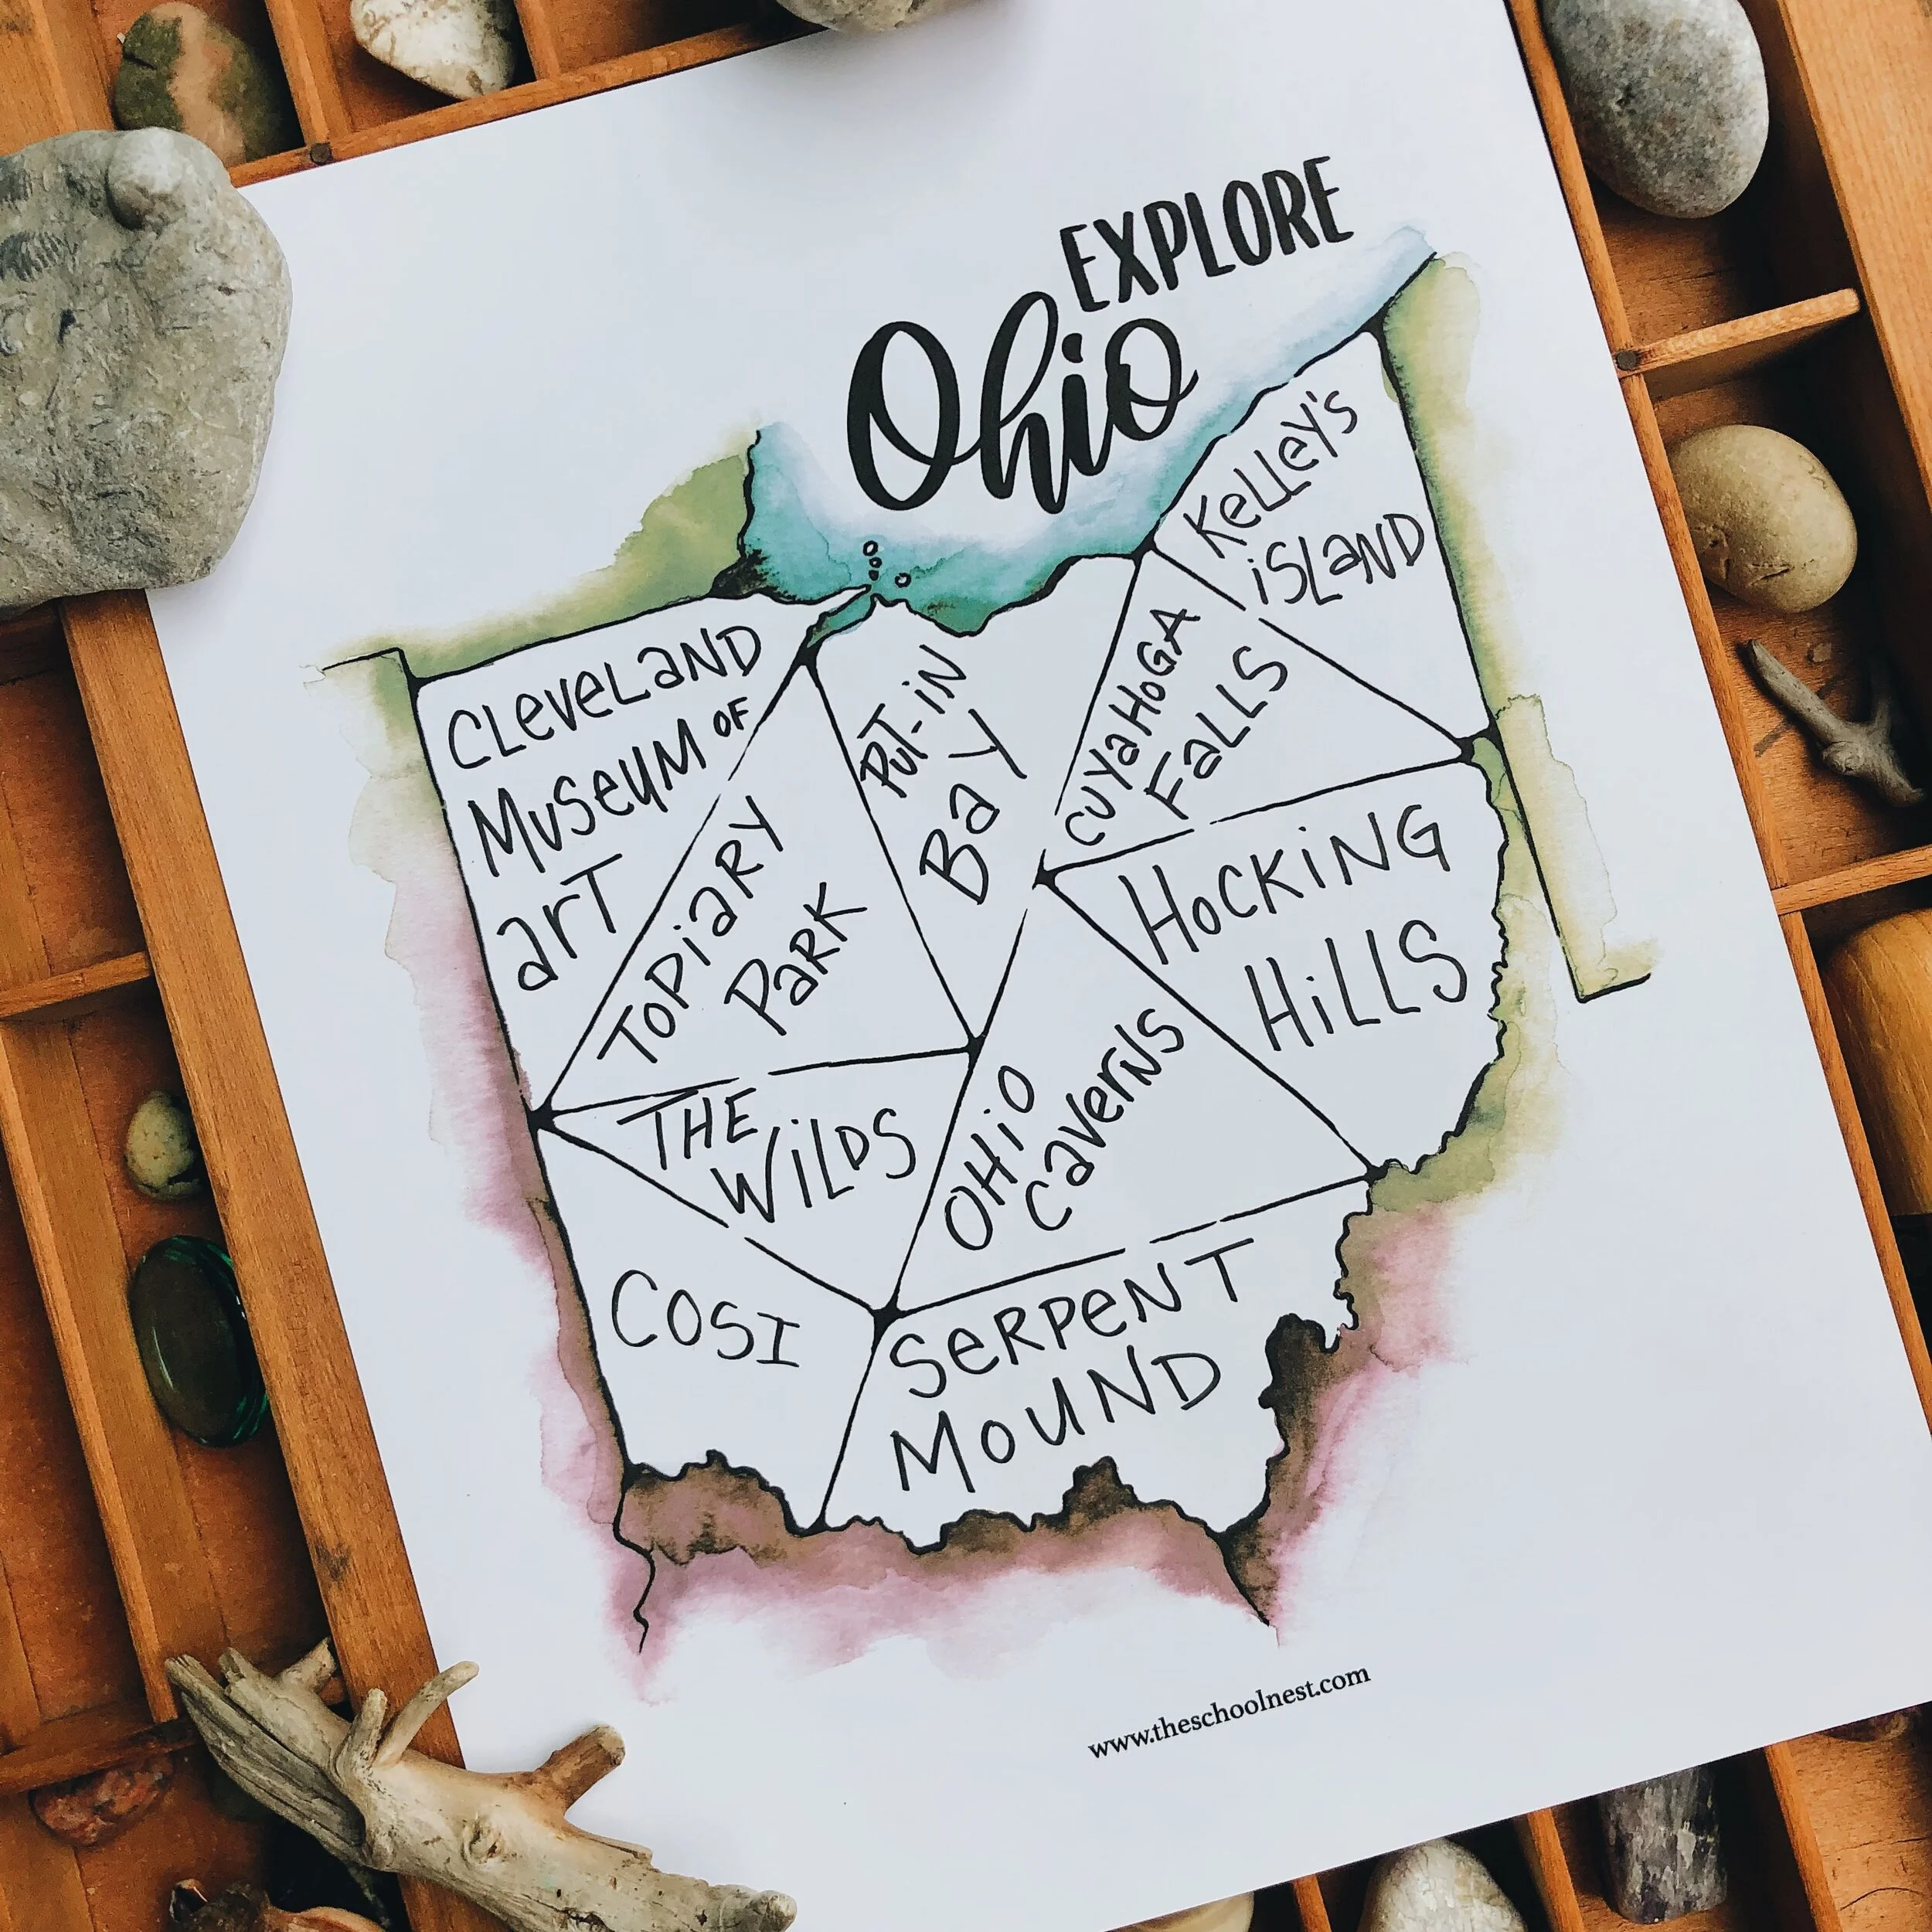 EXPLORE
Ohio
CLeveLaND
MuSeuM OF
arT
TOPiaRY
PaRK
PuT-iN
Bay
CuyaHoGA
FaLLS
KeLLey's
iSLaND
HoCKiNG
HiLLS
THE
WiLDS
OHiO
CaverNS
COSI
SeRPeNT
MouND
www.theschoolnest.com